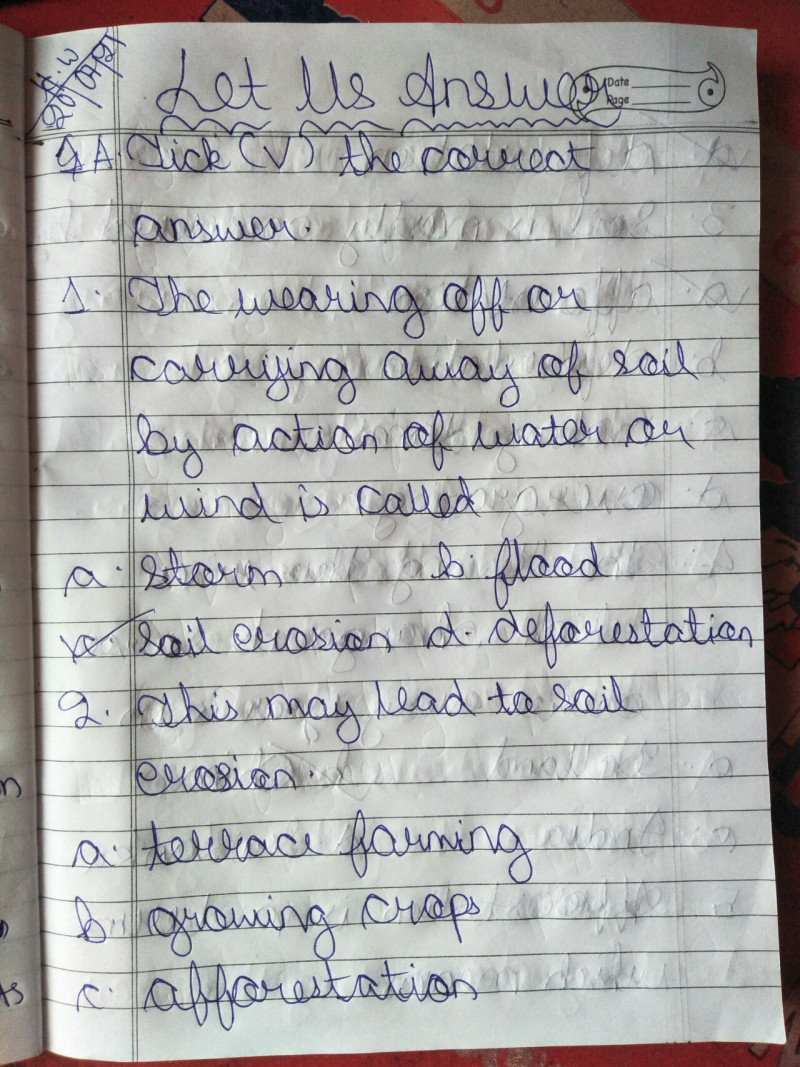 H.W
20/07/21
Let Us Answer
Date
Page
Q A. Tick (√) the correct
answer.
1. The wearing off or
carrying away of soil
by action of water or
wind is called
a. storm b. flood
c. soil erosion d. deforestation
2. This may lead to soil
erosion.
a. terrace farming
b. growing crops
c. afforestation